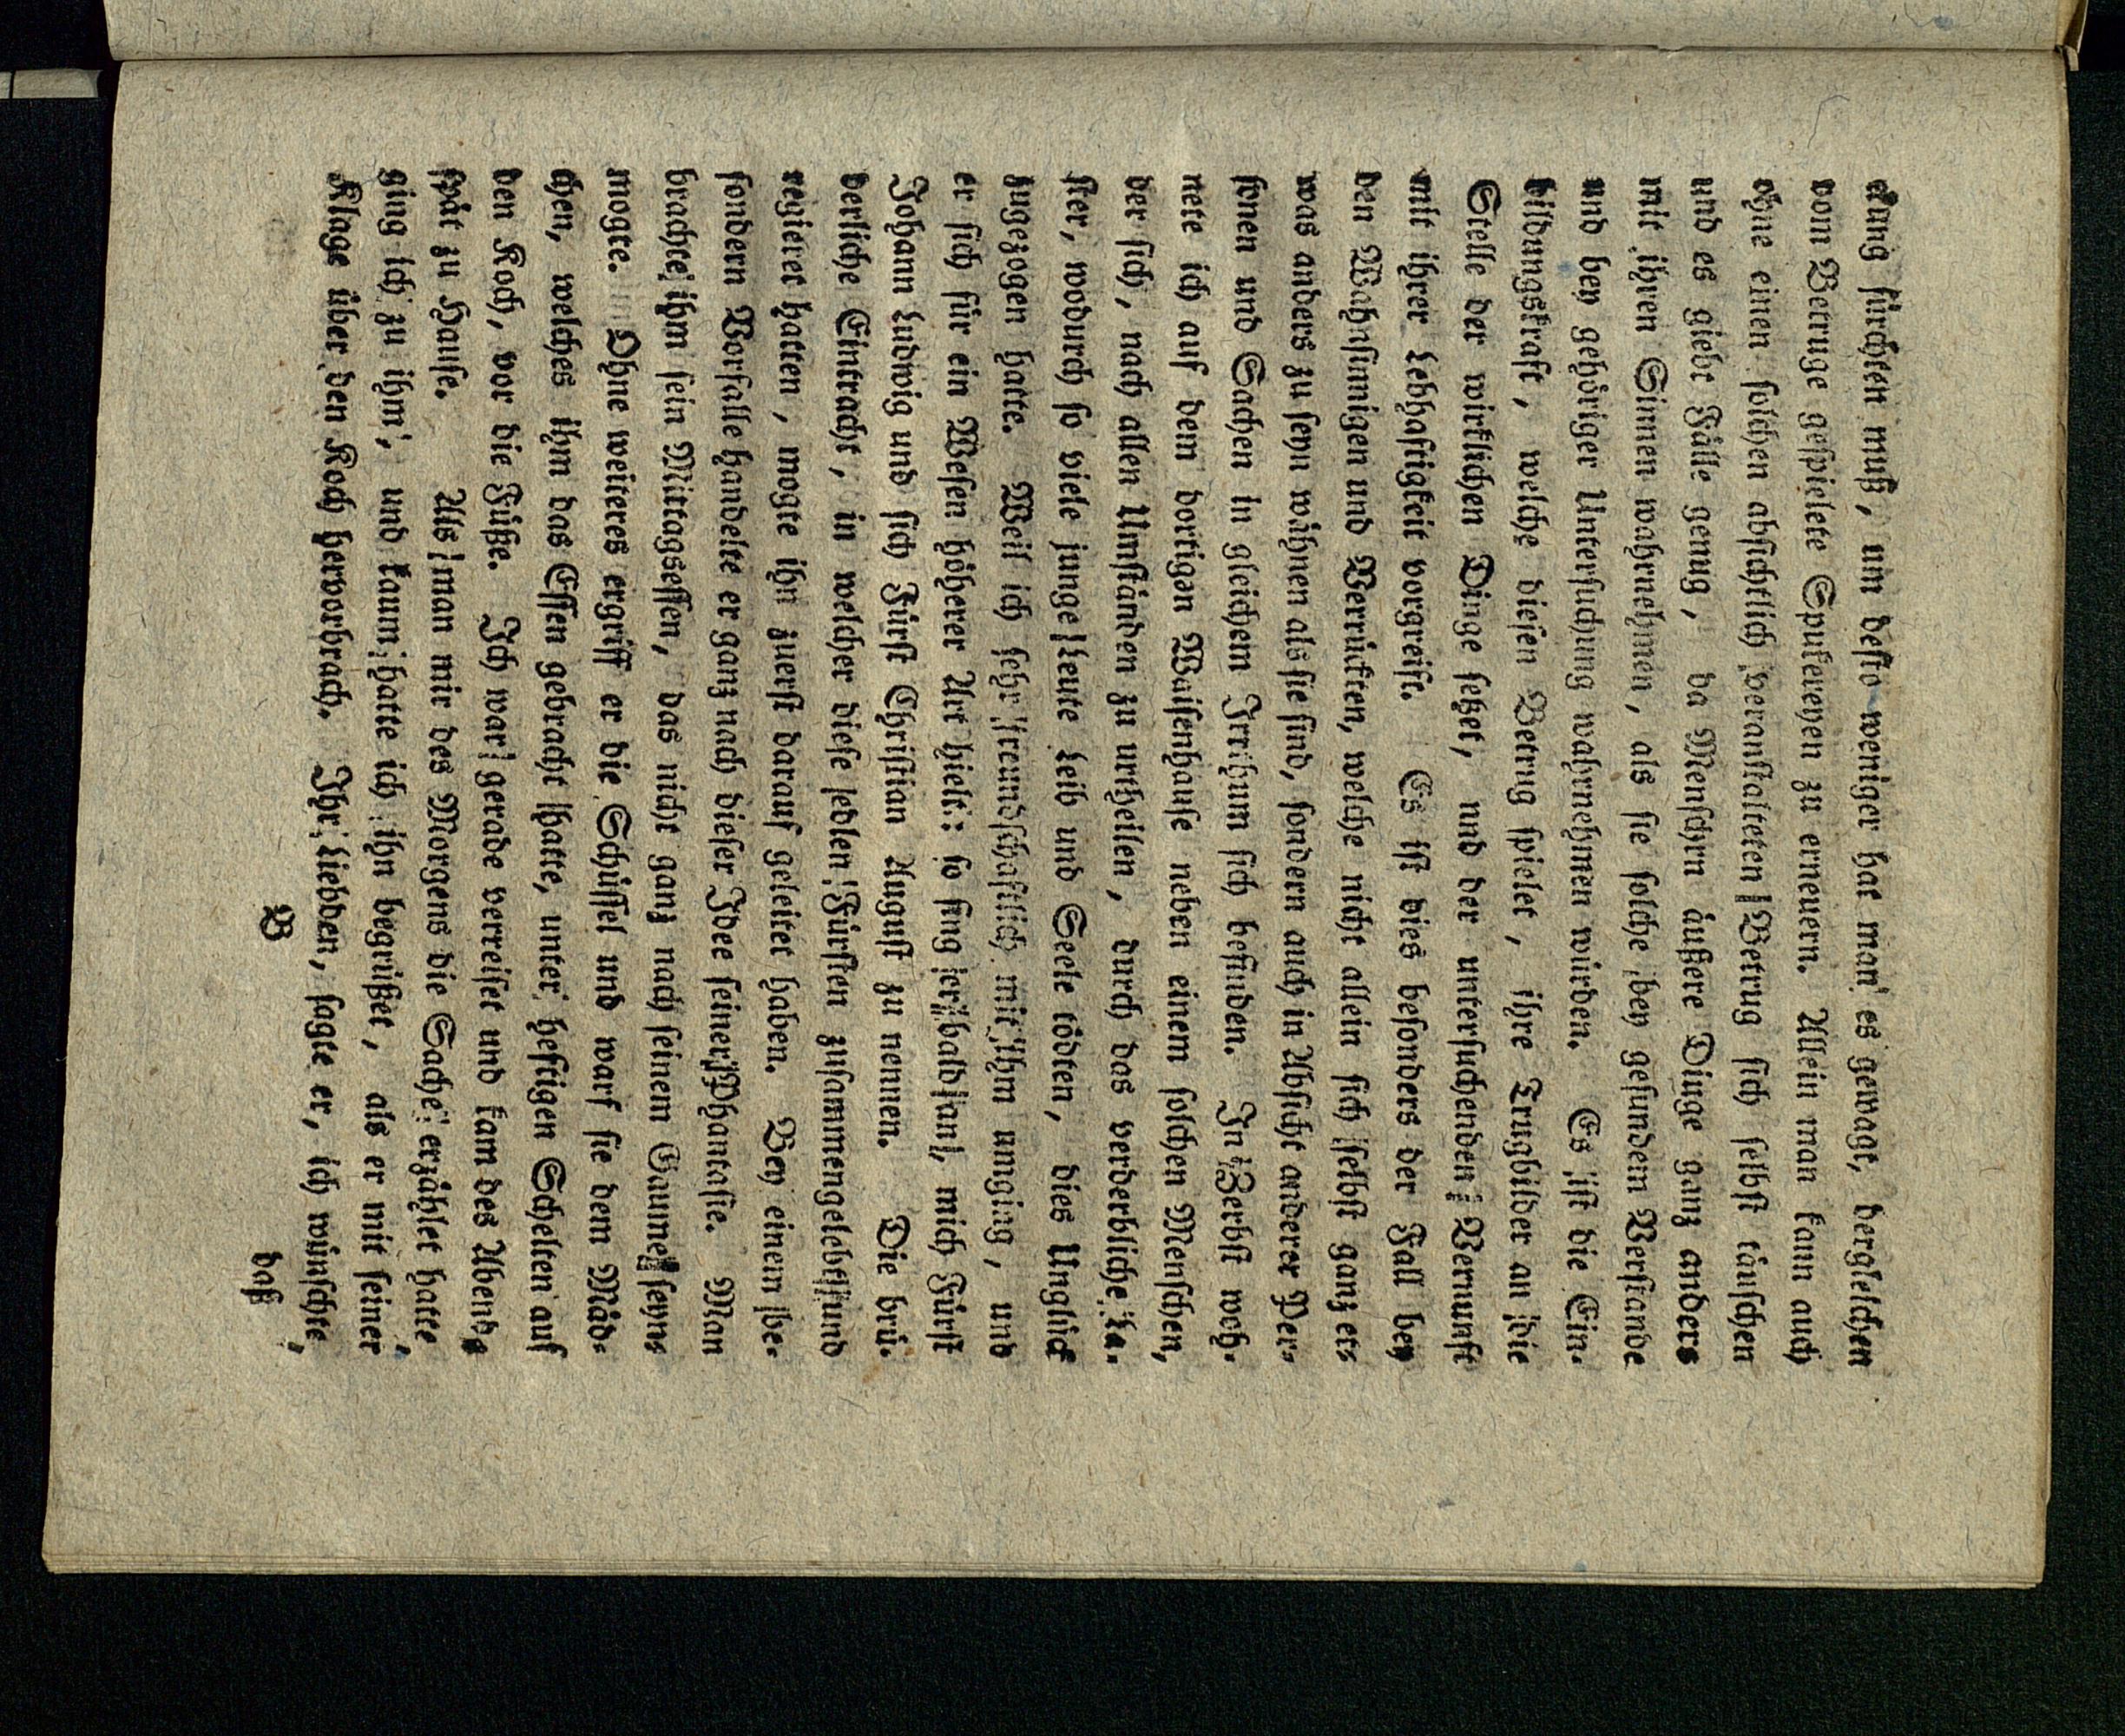 ckung fürchten muß, um desto weniger hat man es gewagt, dergleichen
vom Betruge gespielete Spukereyen zu erneuern. Allein man kann auch
ohne einen solchen absichtlich veranstalteten Betrug sich selbst täuschen
und es giebt Fälle genug, da Menschen äußere Dinge ganz anders
mit ihren Sinnen wahrnehmen, als sie solche bey gesundem Verstande
und bey gehöriger Untersuchung wahrnehmen würden. Es ist die Ein-
bildungskraft, welche diesen Betrug spielet, ihre Trugbilder an die
Stelle der wirklichen Dinge setzet, und der untersuchenden Vernunft
mit ihrer Lebhaftigkeit vorgreift. Es ist dies besonders der Fall bey
den Wahnsinnigen und Verrückten, welche nicht allein sich selbst ganz et-
was anders zu seyn wähnen als sie sind, sondern auch in Absicht anderer Per-
sonen und Sachen in gleichem Irrthum sich befinden. In Zerbst woh-
nete ich auf dem dortigen Waisenhause neben einem solchen Menschen,
der sich, nach allen Umständen zu urtheilen, durch das verderbliche La-
ster, wodurch so viele junge Leute Leib und Seele tödten, dies Unglück
zugezogen hatte. Weil ich sehr freundschaftlich mit ihm umging, und
er sich für ein Wesen höherer Art hielt: so fing er bald an, mich Fürst
Johann Ludwig und sich Fürst Christian August zu nennen. Die brü-
derliche Eintracht, in welcher diese edlen Fürsten zusammengelebt und
regieret hatten, mogte ihn zuerst darauf geleitet haben. Bey einem be-
sondern Vorfalle handelte er ganz nach dieser Idee seiner Phantasie. Man
brachte ihm sein Mittagsessen, das nicht ganz nach seinem Gaume seyn
mogte. Ohne weiteres ergriff er die Schüssel und warf sie dem Mäd-
chen, welches ihm das Essen gebracht hatte, unter heftigen Schelten auf
den Koch, vor die Füße. Ich war gerade verreiset und kam des Abends
spät zu Hause. Als man mir des Morgens die Sache erzählet hatte,
ging ich zu ihm, und kaum hatte ich ihn begrüßet, als er mit seiner
Klage über den Koch hervorbrach. Ihr Liebden, sagte er, ich wünschte,
B
daß